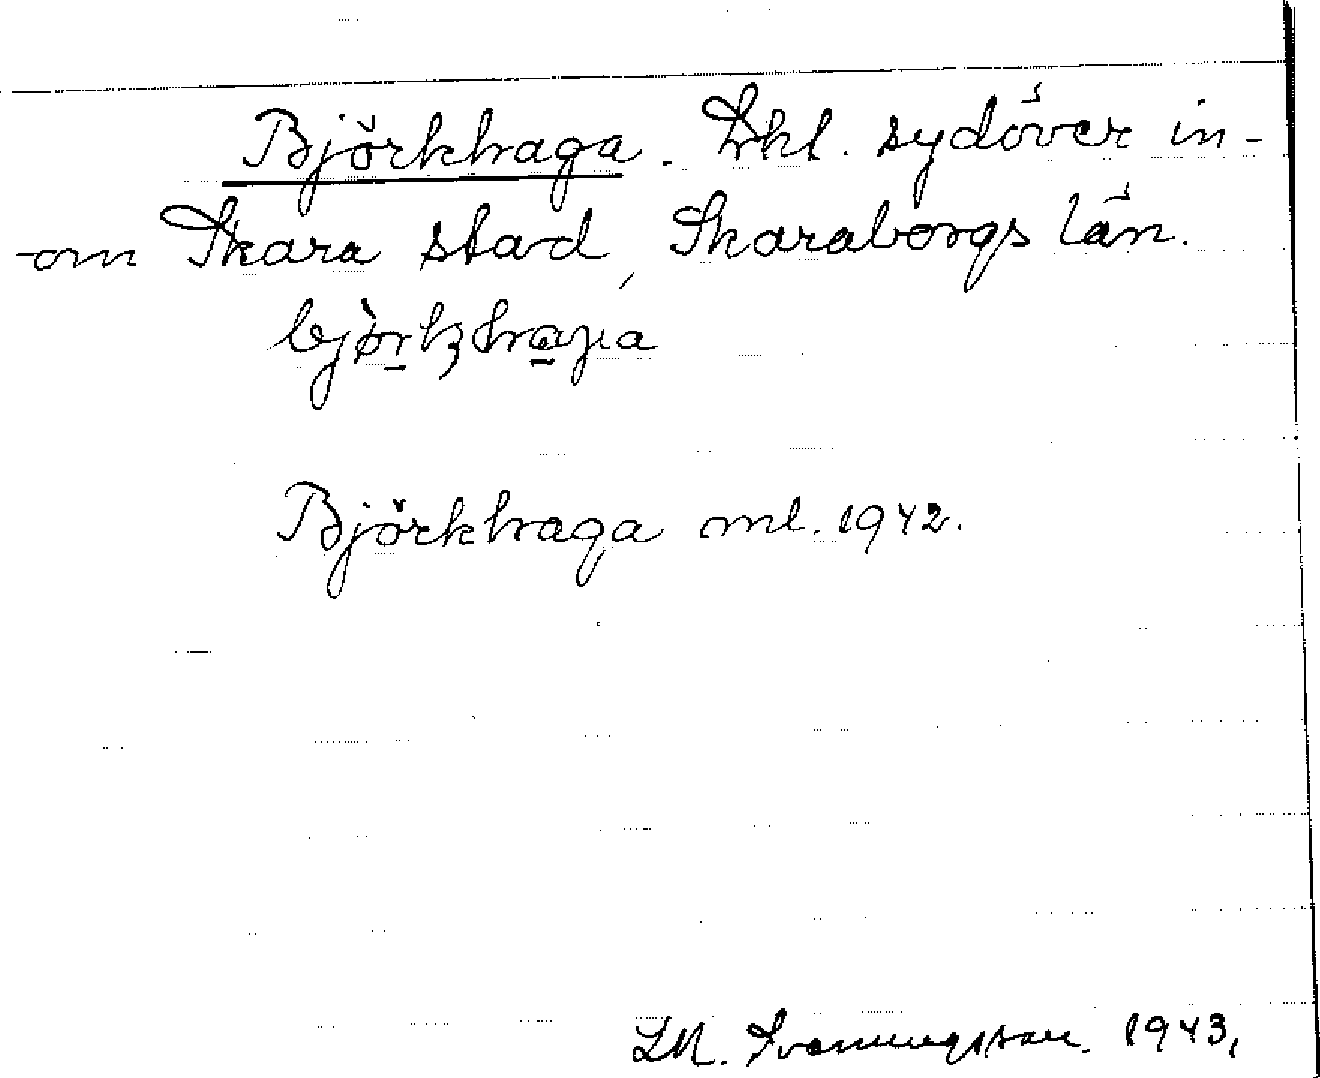 Björkhaga. Lkl. sydöver in-
-om Skara stad, Skaraborgs län.
Björkhaga ml. 1942.
Svenningsson. 1943.